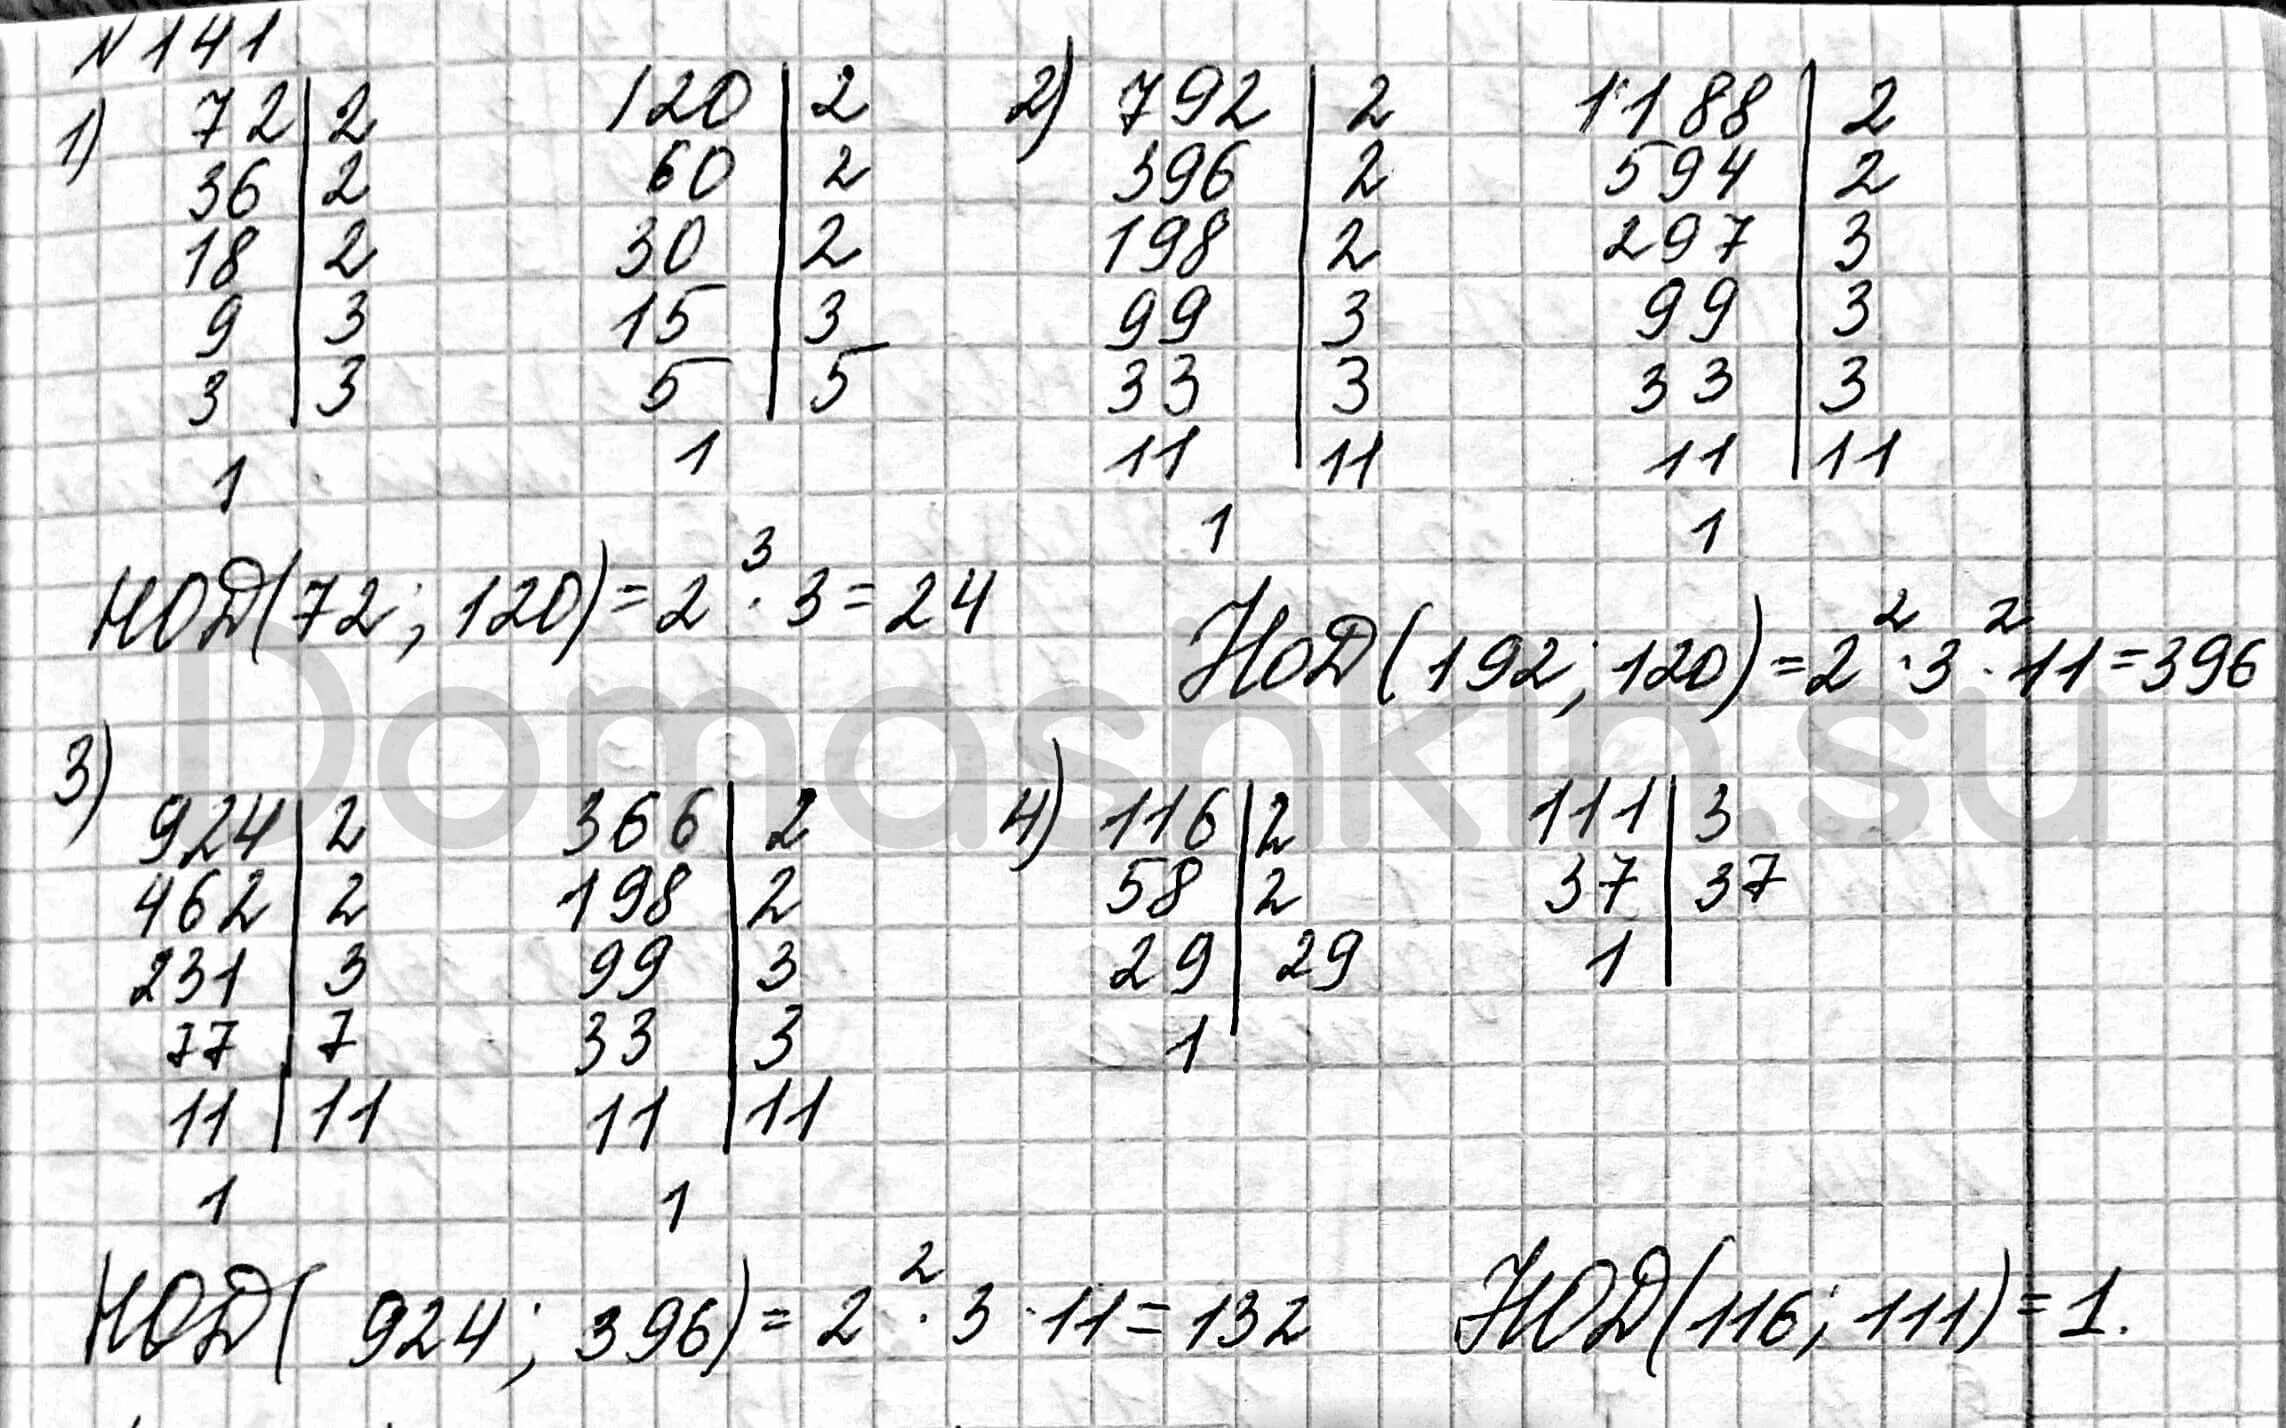 N141
1) 72|2 120|2 2) 792|2 1188|2
36|2 60|2 396|2 594|2
18|2 30|2 198|2 297|3
9|3 15|3 99|3 99|3
3|3 5|5 33|3 33|3
1 1 11|11 11|11
1 1
НОД(72; 120)=2³·3=24
НОД(192; 120)=2²·3²·11=396
3) 924|2 366|2 4) 116|2 111|3
462|2 198|2 58|2 37|37
231|3 99|3 29|29 1|
77|7 33|3 1
11|11 11|11
1 1
НОД( 924; 396)=2²·3·11=132 НОД(116; 111)=1.
Domashkin.su